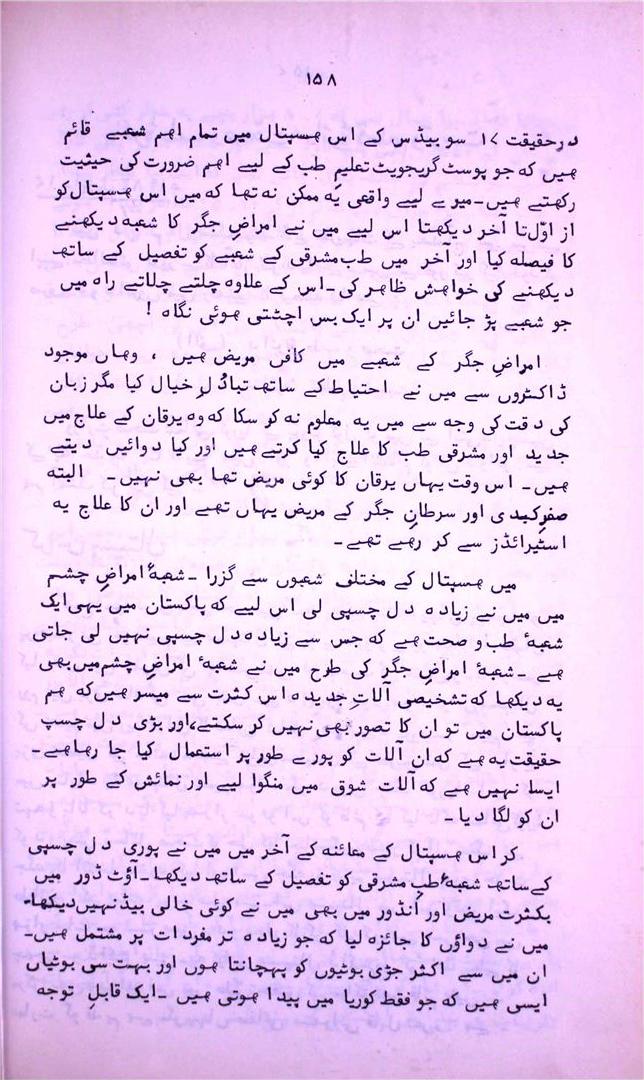 ۱۵۸
درحقیقت ۱۷ سو بیڈس کے اس ھسپتال میں تمام اھم شعبے قائم
ھیں کہ جو پوسٹ گریجویٹ تعلیمِ طب کے لیے اھم ضرورت کی حیثیت
رکھتے ھیں۔ میرے لیے واقعی یہ ممکن نہ تھا کہ میں اس ھسپتال کو
از اوّل تا آخر دیکھتا اس لیے میں نے امراضِ جگر کا شعبہ دیکھنے
کا فیصلہ کیا اور آخر میں طب مشرقی کے شعبے کو تفصیل کے ساتھ
دیکھنے کی خواھش ظاھر کی۔ اس کے علاوہ چلتے چلاتے راہ میں
جو شعبے پڑ جائیں ان پر ایک بس اچٹتی ھوئی نگاہ !
امراضِ جگر کے شعبے میں کافی مریض ھیں ، وھاں موجود
ڈاکٹروں سے میں نے احتیاط کے ساتھ تبادُلِ خیال کیا مگر زبان
کی دقت کی وجہ سے میں یہ معلوم نہ کر سکا کہ وہ یرقان کے علاج میں
جدید اور مشرقی طب کا علاج کیا کرتے ھیں اور کیا دوائیں دیتے
ھیں۔ اس وقت یہاں یرقان کا کوئی مریض تھا بھی نہیں۔ البتہ
صغرِ کبدی اور سرطانِ جگر کے مریض یہاں تھے اور ان کا علاج یہ
اسٹیرائڈز سے کر رھے تھے۔
میں ھسپتال کے مختلف شعبوں سے گزرا ۔ شعبۂ امراضِ چشم
میں میں نے زیادہ دل چسپی لی اس لیے کہ پاکستان میں یہی ایک
شعبۂ طب و صحت ھے کہ جس سے زیادہ دل چسپی نہیں لی جاتی
ھے ۔ شعبۂ امراضِ جگر کی طرح میں نے شعبۂ امراضِ چشم میں بھی
یہ دیکھا کہ تشخیصی آلاتِ جدیدہ اس کثرت سے میسر ھیں کہ ھم
پاکستان میں تو ان کا تصور بھی نہیں کر سکتے، اور بڑی دل چسپ
حقیقت یہ ھے کہ ان آلات کو پورے طور پر استعمال کیا جا رھا ھے۔
ایسا نہیں ھے کہ آلات شوق میں منگوا لیے اور نمائش کے طور پر
ان کو لگا دیا ۔
کر اس ھسپتال کے معائنہ کے آخر میں میں نے پوری دل چسپی
کے ساتھ شعبۂ طبِ مشرقی کو تفصیل کے ساتھ دیکھا۔ آؤٹ ڈور میں
بکثرت مریض اور اِنڈور میں بھی میں نے کوئی خالی بیڈ نہیں دیکھا۔
میں نے دواؤں کا جائزہ لیا کہ جو زیادہ تر مفردات پر مشتمل ھیں۔
ان میں سے اکثر جڑی بوٹیوں کو پہچانتا ھوں اور بہت سی بوٹیاں
ایسی ھیں کہ جو فقط کوریا میں پیدا ھوتی ھیں ۔ ایک قابلِ توجہ